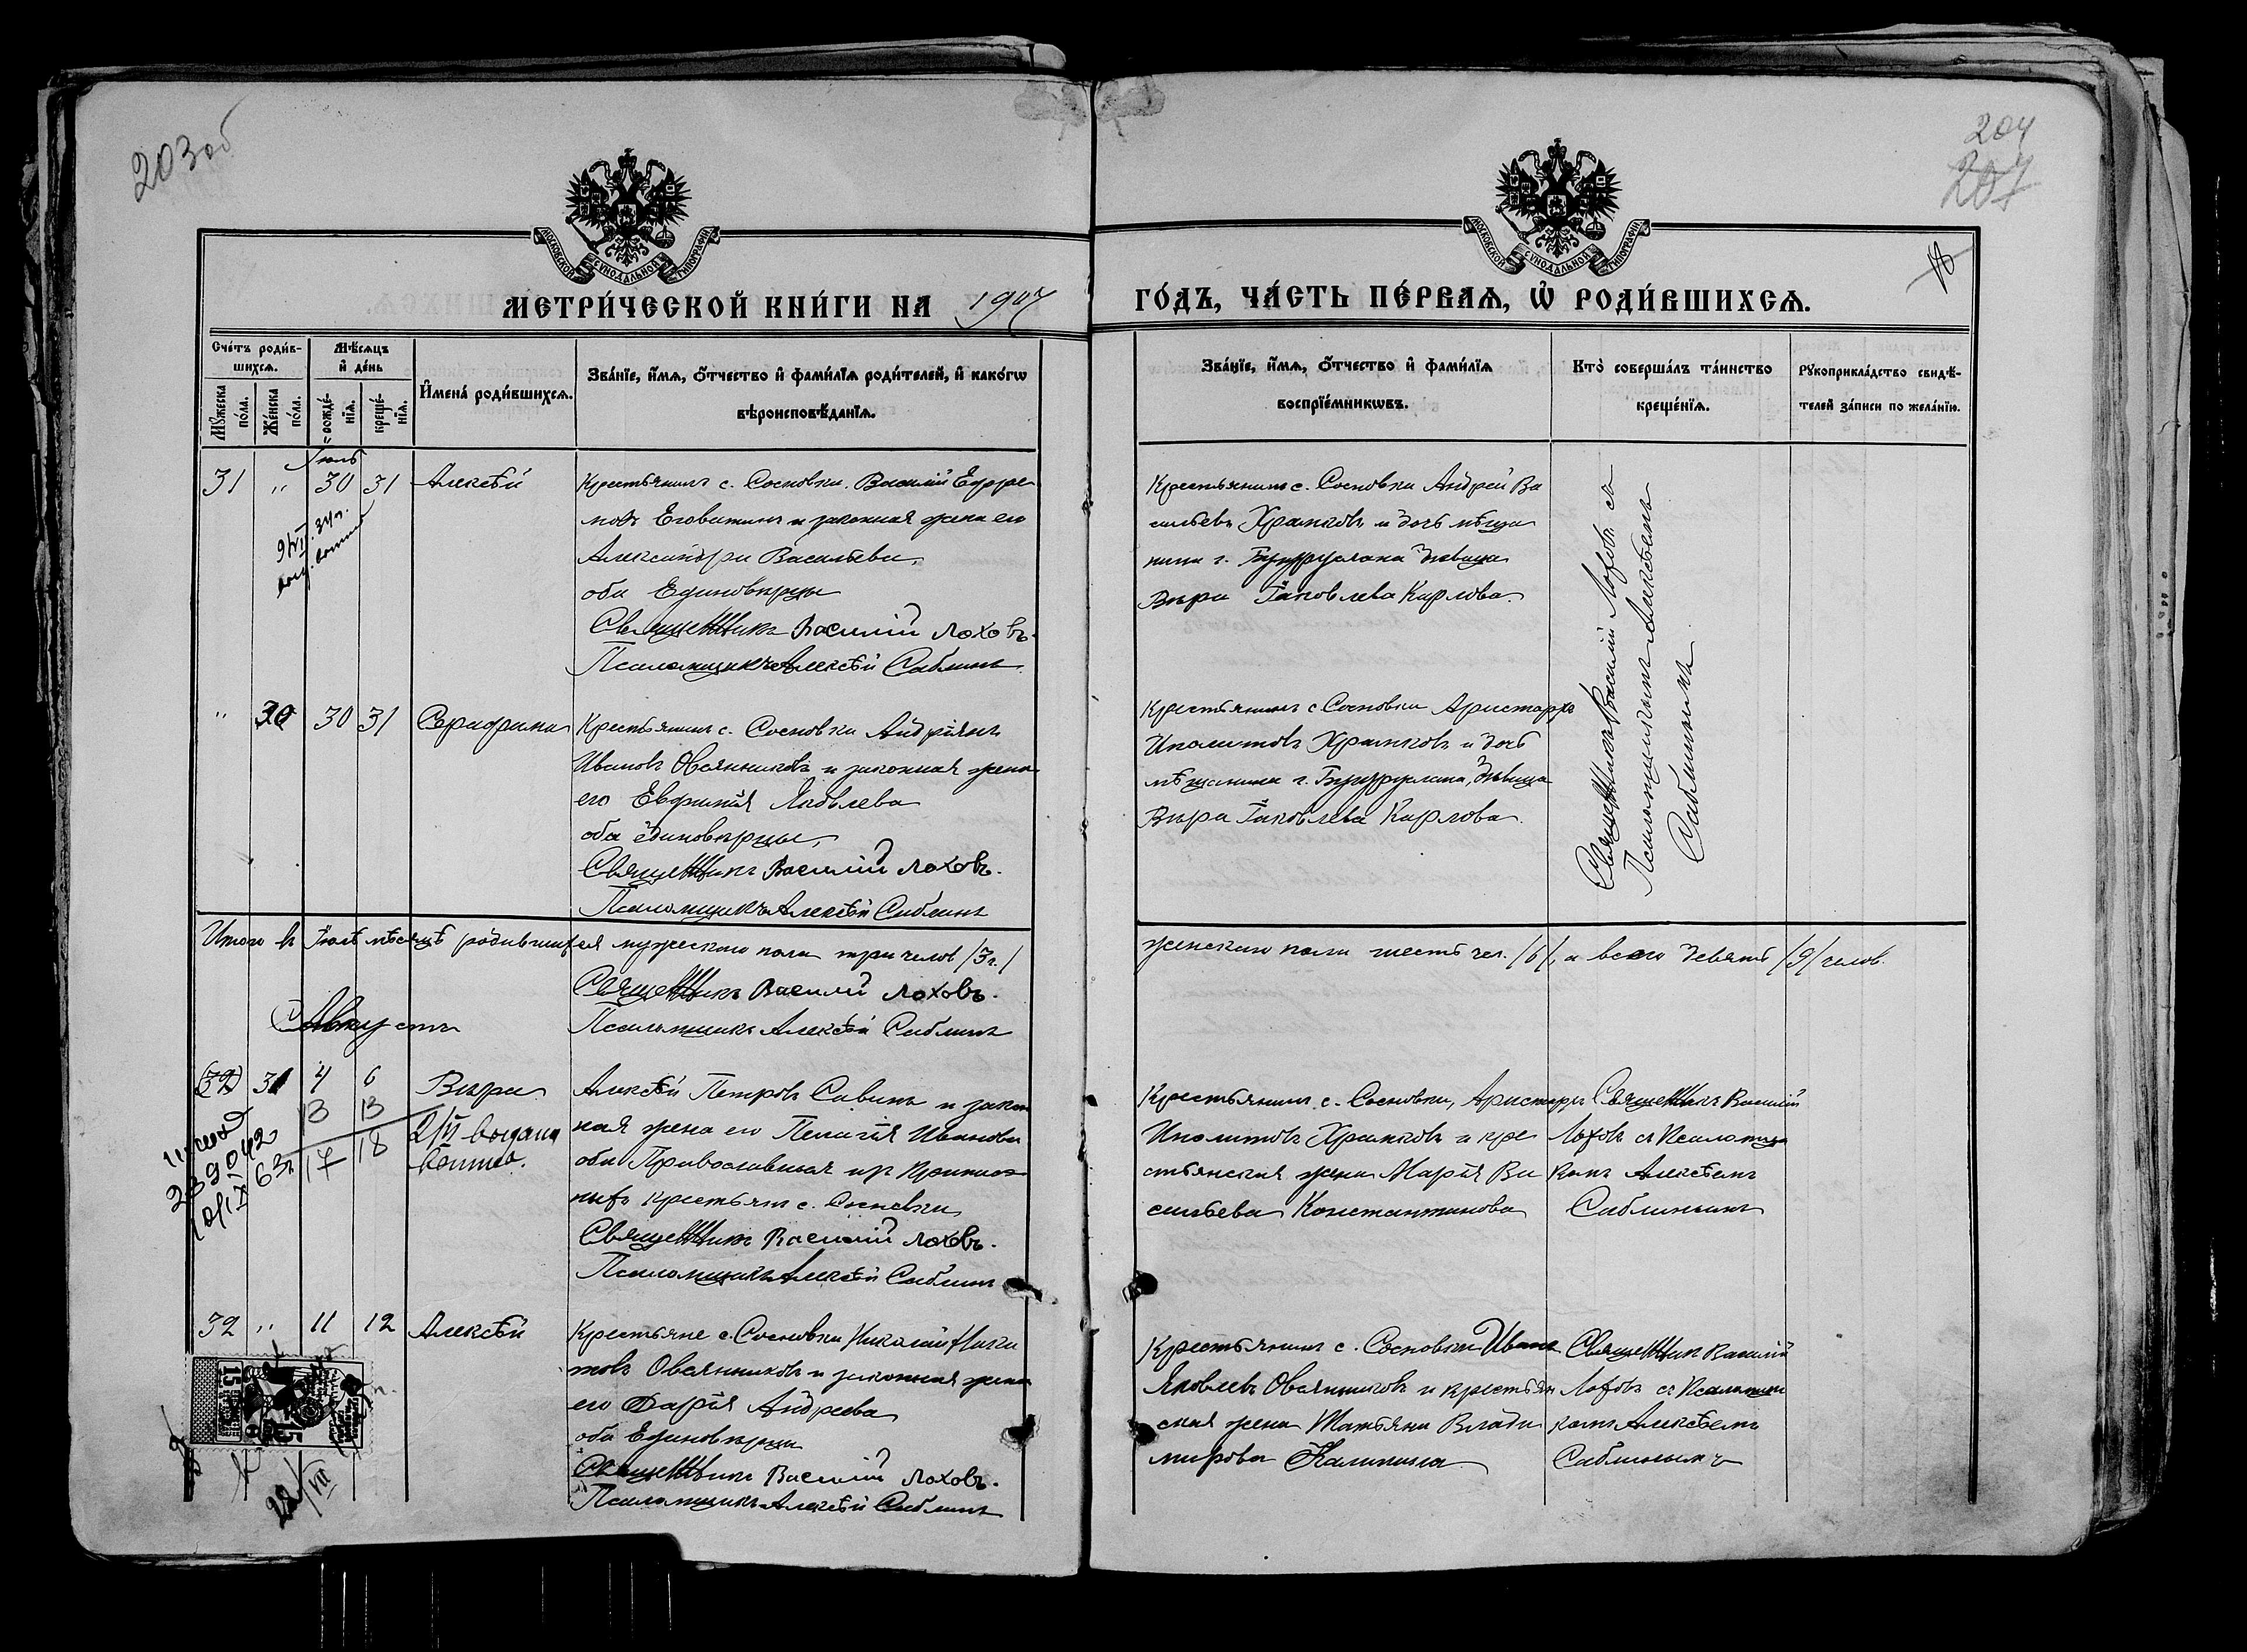 203 об
204
207
МОСКОВСКОЙ СѴНОДАЛЬНОЙ ТИПОГРАФІИ
МОСКОВСКОЙ СѴНОДАЛЬНОЙ ТИПОГРАФІИ
18
МЕТРИ́ЧЕСКОЙ КНИ́ГИ НА 1907 ГО́ДЪ, ЧА́СТЬ ПЕ́РВАѦ, Ѡ҆ РОДИ́ВШИХСѦ.
Сче́тъ роди́в-
шихсѧ.
Мꙋжеска по́ла.
Же́нска по́ла.
Мѣ́сѧцъ
и҆ де́нь
рожде́-
нїѧ.
креще́-
нїѧ.
И҆мена̀ роди́вшихсѧ.
Зва́нїе, и҆́мѧ, ѻ҆́тчество и҆ фами́лїѧ роди́телей, и҆ како́гѡ
вѣроисповѣ́данїѧ.
Зва́нїе, и҆́мѧ, ѻ҆́тчество и҆ фами́лїѧ
воспрїе́мникѡвъ.
Кто̀ соверша́лъ та́инство
креще́нїѧ.
Рꙋкоприкла́дство свидѣ́-
телей за́писи по жела́нїю.
Іюль
31 „ 30 31 Алексѣй
Крестьянинъ с. Сосновки Василій Ефре
мовъ Еговитинъ и законная жена его
Александра Васильева,
оба Единовѣрцы
Священникъ Василій Лоховъ.
Псаломщикъ Алексѣй Саблинъ.
Крестьянинъ с. Сосновки Андрей Ва
сильевъ Храмковъ и дочь мѣща
нина г. Бугуруслана дѣвица
Вѣра Іаковлева Карпова.
Священникъ Василій Лоховъ съ
Псаломщикомъ Алексѣемъ
Саблинымъ
„ 30 30 31 Серафима
Крестьянинъ с. Сосновки Андріянъ
Ивановъ Овсянниковъ и законная жена
его Евфимія Яковлева
оба единовѣрцы,
Священникъ Василій Лоховъ.
Псаломщикъ Алексѣй Саблинъ
Крестьянинъ с. Сосновки Аристархъ
Иполитовъ Храмковъ и дочь
мѣщанина г. Бугуруслана, дѣвица
Вѣра Іаковлева Карпова.
Итого въ Іюлѣ мѣсяцѣ родившихся мужескаго пола три челов /3 ч./
женскаго пола шесть чел. /6/, а всего девять /9/ челов.
Священникъ Василій Лоховъ.
Псаломщикъ Алексѣй Саблинъ
Августъ
32 31 4 6 Вѣра
13 13
17 18
Алексѣй Петровъ Савинъ и закон
ная жена его Пелагія Иванова
оба Православныя изъ
крестьянъ с. Сосновки
Священникъ Василій Лоховъ.
Псаломщикъ Алексѣй Саблинъ
Крестьянинъ с. Сосновки, Аристархъ
Иполитовъ Храмковъ и кре
стьянская жена Марія Ва
сильева Константинова
Священникъ Василій
Лоховъ съ Псаломщи
комъ Алексѣемъ
Саблинымъ
выдана
копия.
239042
32 „ 11 12 Алексѣй
Крестьяне с. Сосновки Николай Ники
товъ Овсянниковъ и законная жена
его Дарія Андреева
оба Единовѣрцы
Священникъ Василій Лоховъ.
Псаломщикъ Алексѣй Саблинъ
Крестьянинъ с. Сосновки Иванъ
Яковлевъ Овсянниковъ и крестьян
ская жена Татьяна Влади
мирова Калинина
Священникъ Василій
Лоховъ съ Псаломщи
комъ Алексѣемъ
Саблинымъ
15
28/VII